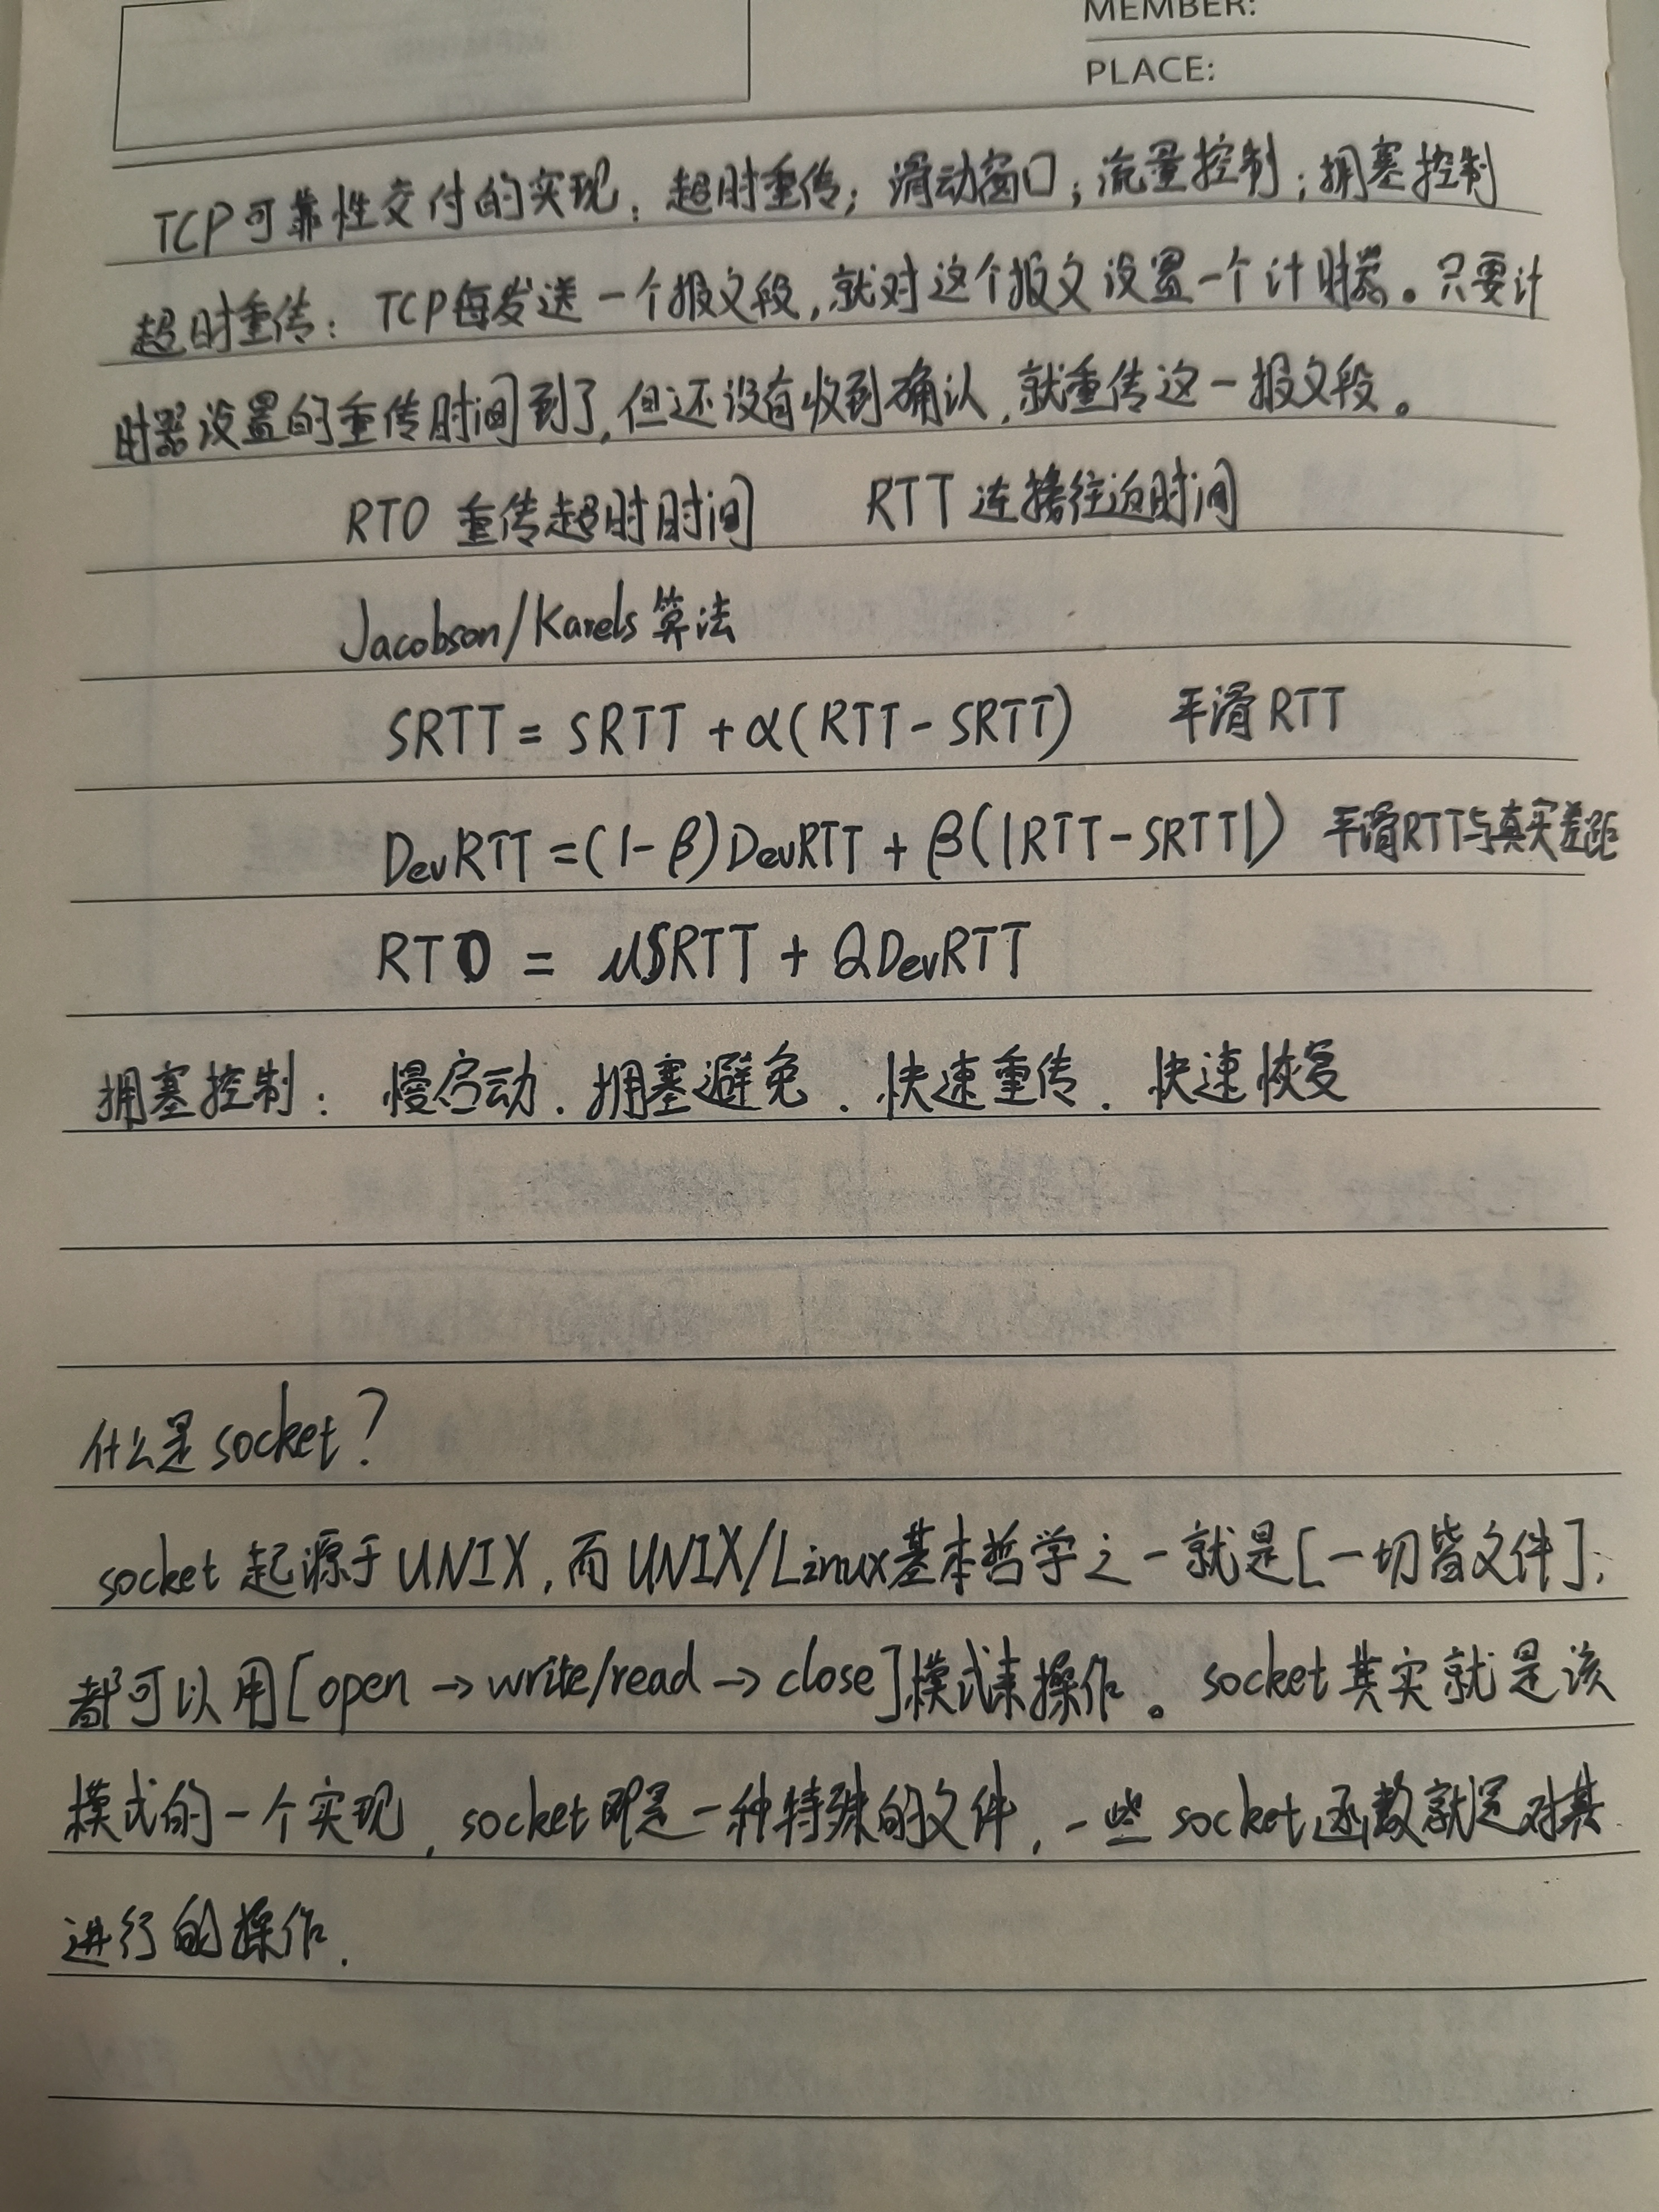 MEMBER:
PLACE:
TCP可靠性交付的实现:超时重传;滑动窗口;流量控制;拥塞控制
超时重传:TCP每发送一个报文段,就对这个报文设置一个计时器。只要计
时器设置的重传时间到了,但还没有收到确认,就重传这一报文段。
RTO 重传超时时间 RTT 连接往返时间
Jacobson/Karels算法
SRTT = SRTT + α(RTT - SRTT) 平滑RTT
DevRTT = (1-β)DevRTT + β(|RTT-SRTT|) 平滑RTT与真实差距
RTO = μSRTT + QDevRTT
拥塞控制:慢启动、拥塞避免、快速重传、快速恢复
什么是socket?
socket起源于UNIX,而UNIX/Linux基本哲学之一就是[一切皆文件];
都可以用[open→write/read→close]模式来操作。socket其实就是该
模式的一个实现,socket即是一种特殊的文件,一些socket函数就是对其
进行的操作.